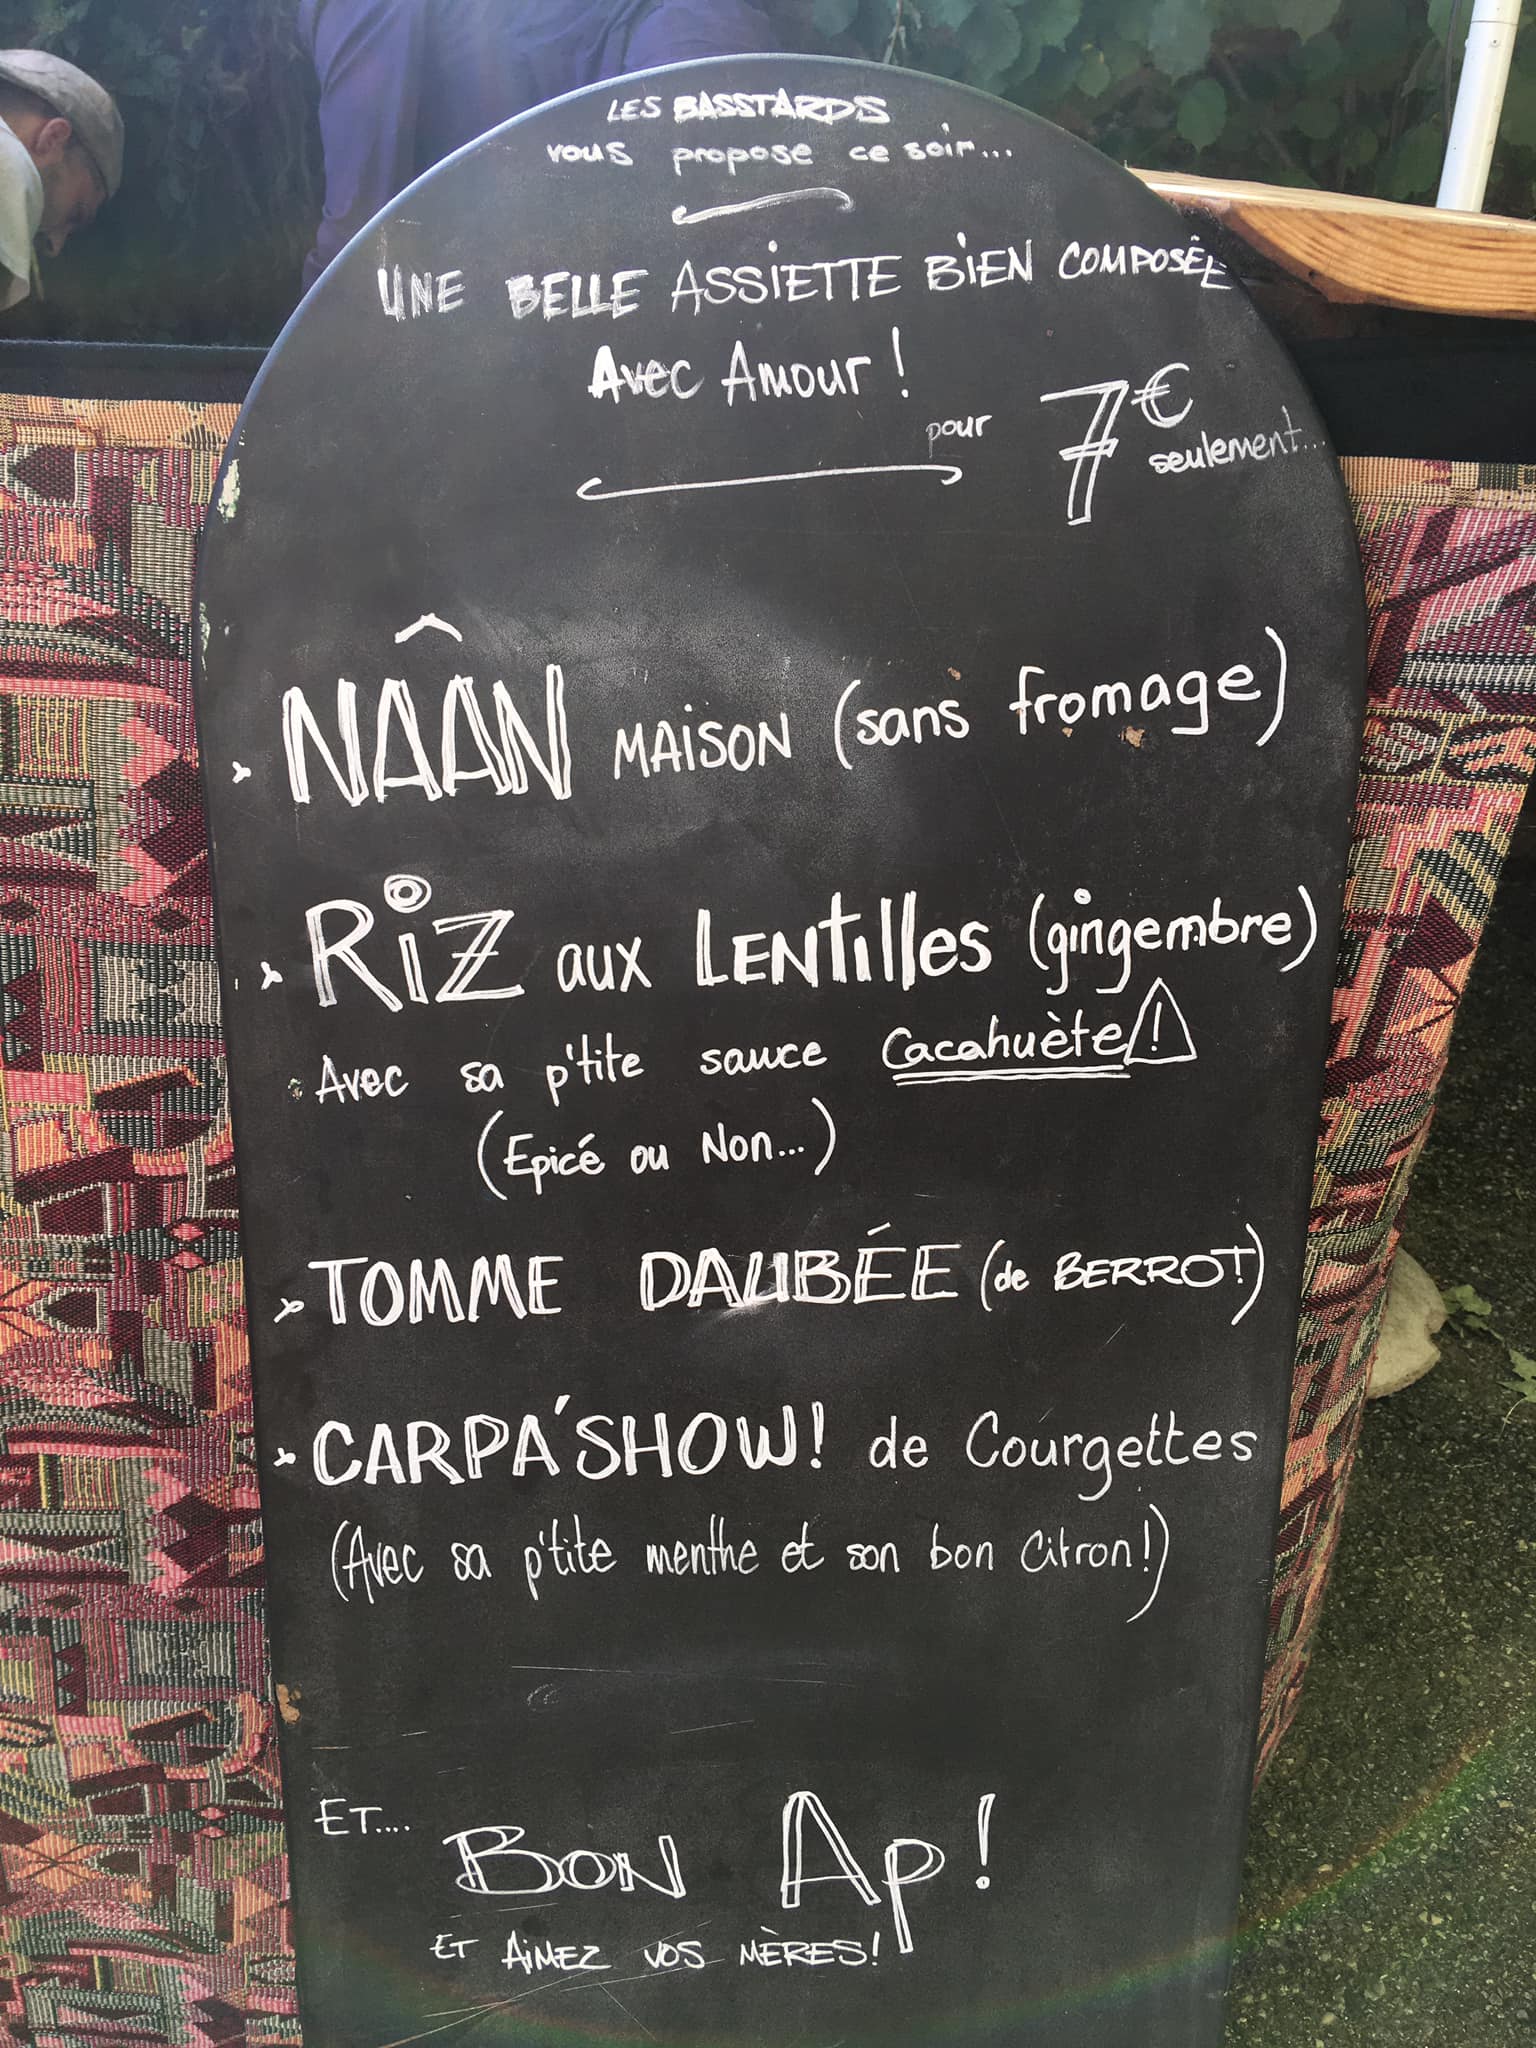 LES BASSTARDS
vous propose ce soir...
UNE BELLE ASSIETTE BIEN COMPOSÉE
Avec Amour !
pour 7€
seulement...
NÂAN MAISON (sans fromage)
RIZ aux LENTilles (gingembre)
Avec sa p'tite sauce Cacahuète !
(Epicé ou Non...)
TOMME DAUBÉE (de BERROT)
CARPA'SHOW! de Courgettes
(Avec sa p'tite menthe et son bon Citron!)
ET....
BON Ap!
ET AIMEZ VOS MÈRES!